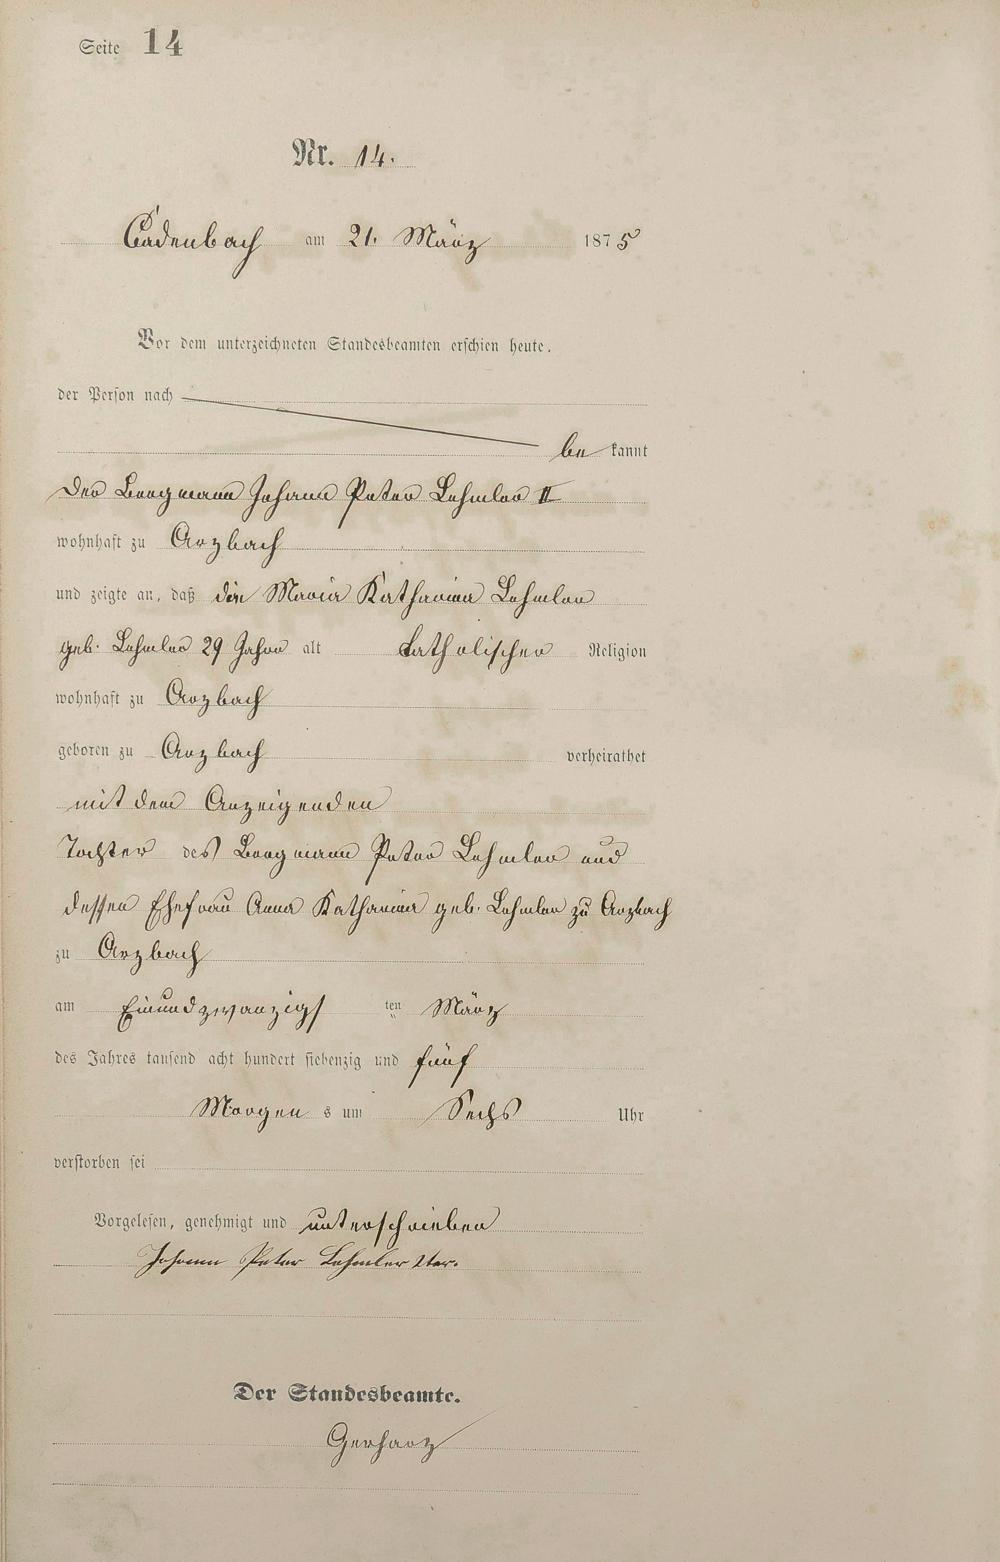 Seite 14
Nr. 14.
Cadenbach am 21. März 1875
Vor dem unterzeichneten Standesbeamten erschien heute.
der Person nach
be kannt
der Bergmann Johann Peter Lehmler II
wohnhaft zu Arzbach
und zeigte an, daß die Maria Katharina Lehmler
geb. Lehmler 29 Jahre alt katholischer Religion
wohnhaft zu Arzbach
geboren zu Arzbach verheirathet
mit dem Anzeigenden
Tochter des Bergmann Peter Lehmler und
dessen Ehefrau Anna Katharina geb. Lehmler zu Arzbach
zu Arzbach
am Einundzwanzigs ten März
des Jahres tausend acht hundert siebenzig und fünf
Morgen s um Sechs Uhr
verstorben sei
Vorgelesen, genehmigt und unterschrieben
Johann Peter Lehmler 2ter.
Der Standesbeamte.
Gerharz